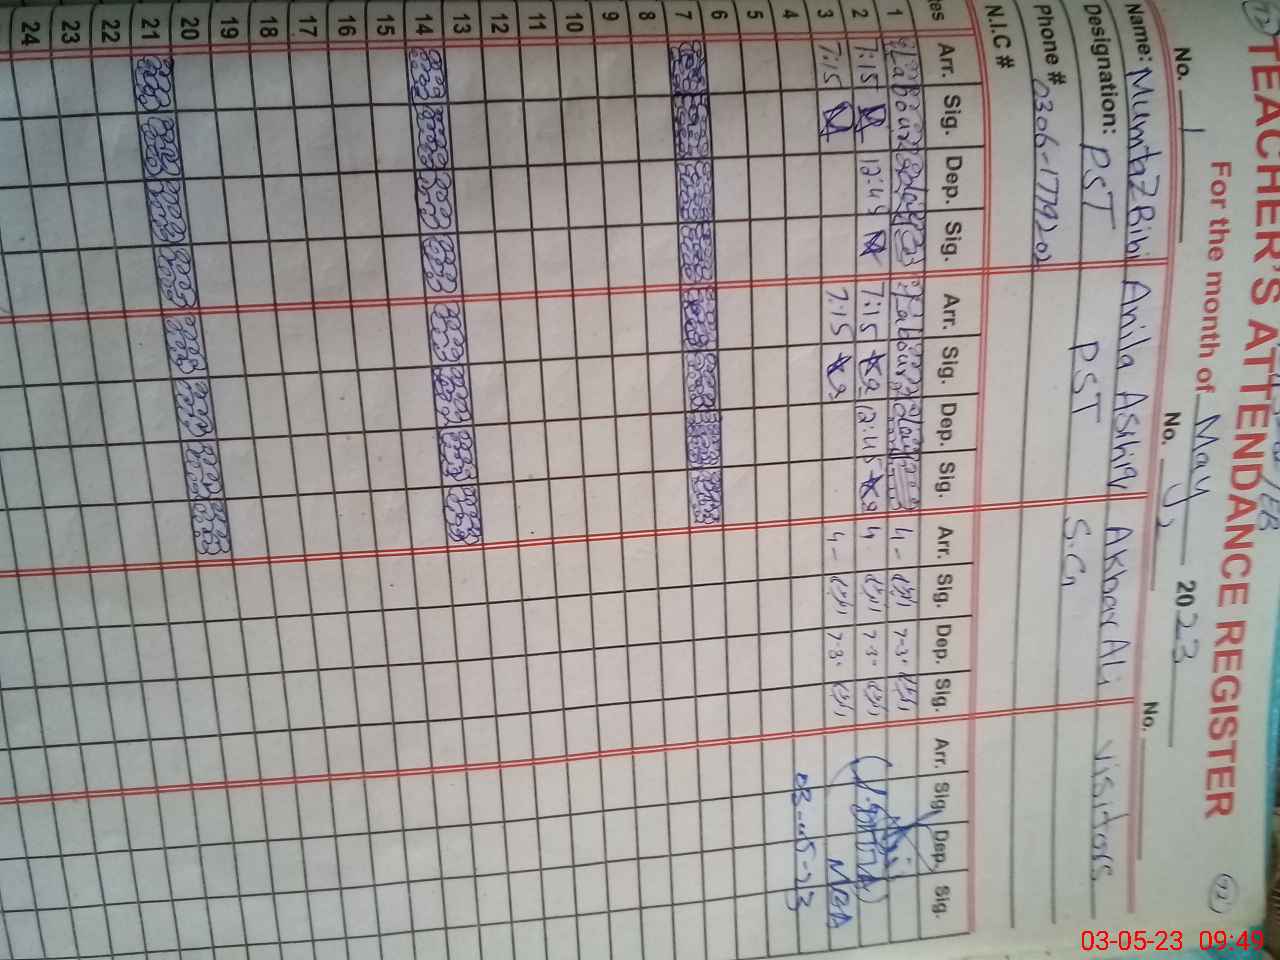 TEACHER'S ATTENDANCE REGISTER
For the month of May, 2023
No. 1 No. No.
Name: Mumtaz Bibi Anila Ashiq Akbar Ali Visitors
Designation: PST PST S.G
Phone # 0306-1779202
N.I.C #
Arr. Sig. Dep. Sig. Arr. Sig. Dep. Sig. Arr. Sig. Dep. Sig. Arr. Sig. Dep. Sig.
1 Labour Labour 4 - 7-3°
2 7:15 12:45 7:15 12:45 4 7-3°
3 7:15 7:15 4 - 7-3°
MEA
4 03-05-23
5
6
7
8
9
10
11
12
13
14
15
16
17
18
19
20
21
22
23
24
72
03-05-23 09:49